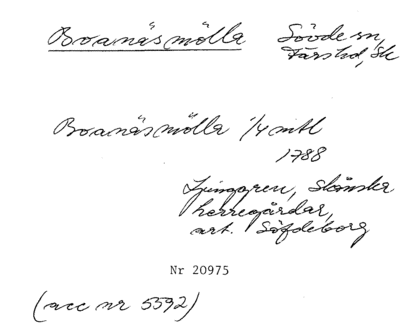 Boanäsmölla Sövde sn,
Färs hd, Sk
Boanäsmölla 1/4 mtl
1788
Ljunggren, Skånska
herregårdar,
art. Söfdeborg
Nr 20975
(acc nr 5592)